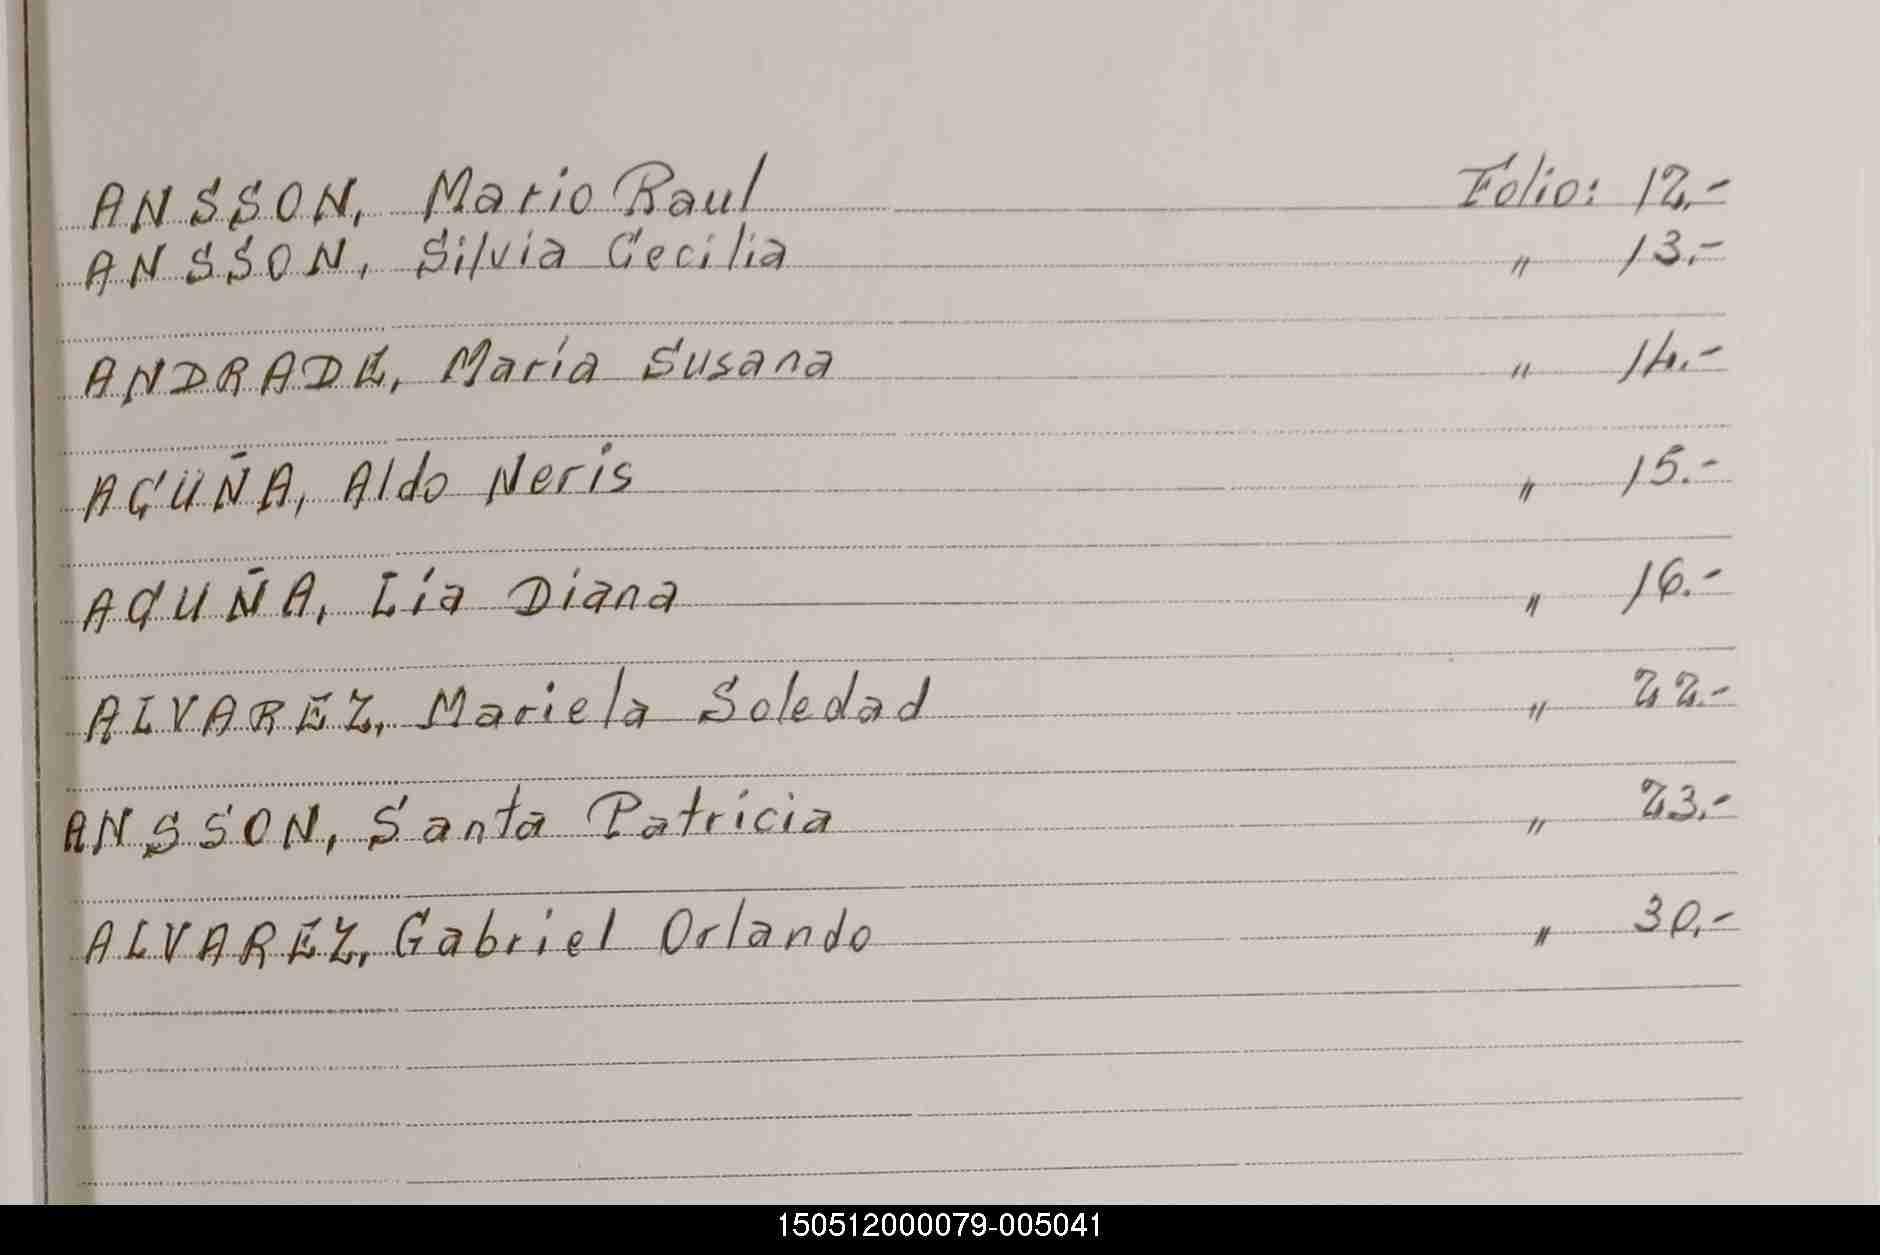 ANSSON, Mario Raul Folio: 12.-
ANSSON, Silvia Cecilia " 13.-
ANDRADE, María Susana " 14.-
ACUÑA, Aldo Neris " 15.-
ACUÑA, Lía Diana " 16.-
ALVAREZ, Mariela Soledad " 22.-
ANSSON, Santa Patricia " 23.-
ALVAREZ, Gabriel Orlando " 30.-
150512000079-005041